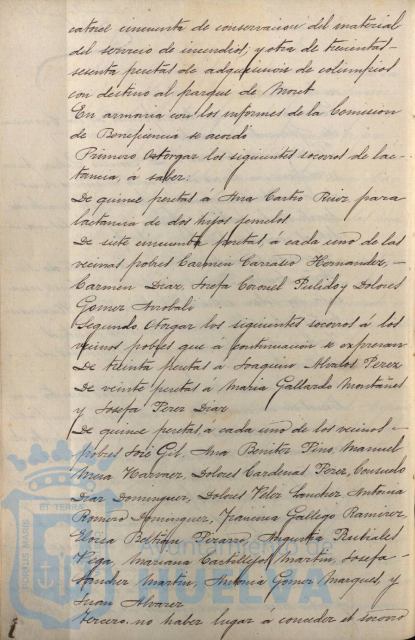 catorce cincuenta de conservacion del material
del servicio de incendios, y otra de trescientas
sesenta pesetas de adquisicion de columpios
con destino al parque de Moret
En armonia con los informes de la Comision
de Beneficencia se acordó
Primero Otorgar los siguientes socorros de lac-
tancia, á saber:
De quince pesetas á Ana Castro Ruiz para
lactancia de dos hijos gemelos
De siete cincuenta pesetas, á cada uno de las
vecinas pobres Carmen Carrasco Hernandez,
Carmen Diaz, Josefa Coronel Pulido y Dolores
Gomez
Segundo Otorgar los siguientes socorros á los
vecinos pobres que á continuación se expresan
De treinta pesetas á Joaquino Alvalos Perez
De veinte pesetas á Maria Gallardo Montañez
y Josefa Perez Diaz
De quince pesetas á cada uno de los vecinos
pobres José Gil, Ana Benitez Pino, Manuel
Mesa Narvaez, Dolores Cardenas Perez, Consuelo
Diaz Dominguez, Dolores Velez Sanchez Antonia
Romero Dominguez, Francisca Gallego Ramirez,
Eloisa Beltrán Pizarro, Augustia Rubiales
Vega, Mariana Castillejo Martin, Josefa
Sanchez Martin, Antonia Gomez Marquez, y
Juan Alvarez
Tercero: no haber lugar á conceder el socorro
PORTUS MARIS
ET TERRAE
Ayuntamiento de
HUELVA